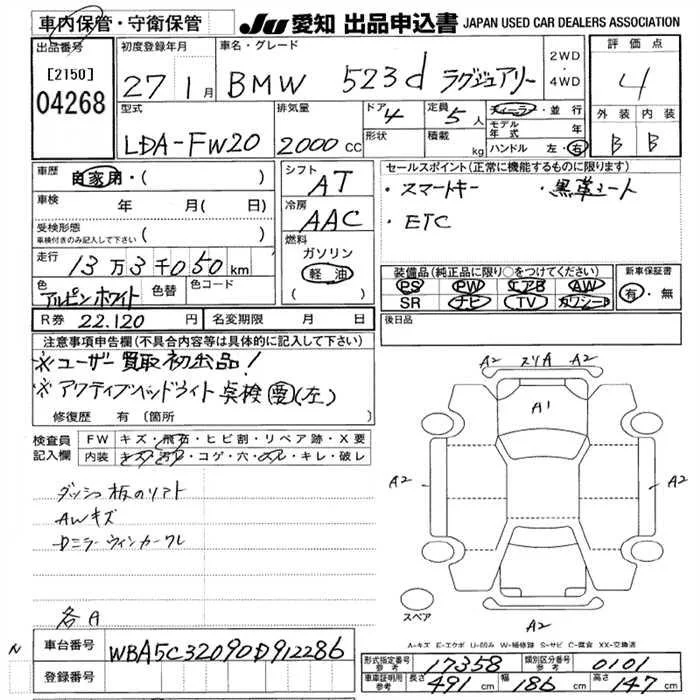 車内保管・守衛保管
JU 愛知 出品申込書 JAPAN USED CAR DEALERS ASSOCIATION
出品番号
[2150]
04268
初度登録年月
27 1月
車名・グレード
BMW 523d ラグジュアリー
2WD
・
4WD
評価点
4
型式
LDA-FW20
排気量
2000 CC
ドア 4
形状
定員 5 人
積載 kg
ディーラー・並行
モデル年式 年
ハンドル 左・右
外装 内装
B B
車歴 自家用・( )
車検 年 月( 日)
受検形態
車検付きのみ記入して下さい ( )
走行 13万3千050km
色 アルピンホワイト 色替 色コード
R券 22.120 円 名変期限 月 日
シフト
AT
冷房
AAC
燃料
ガソリン
軽油
( )
セールスポイント(正常に機能するものに限ります)
・スマートキー ・黒革シート
・ETC
装備品(純正品に限り○をつけてください)
PS PW エアB AW
SR ナビ TV カワシート
新車保証書
有・無
後日品
注意事項申告欄(不具合内容等は具体的に記入して下さい)
※ユーザー買取初出品!
※アクティブヘッドライト点検要(左)
修復歴 有〔箇所 〕
検査員記入欄
FW キズ・飛石・ヒビ割・リペア跡・X要
内装 キズ・汚れ・コゲ・穴・スレ・キレ・破レ
ダッシュ板のリフト
AWキズ
Dミラーウィンカーワレ
各A
A2 スリA A2
A1
A2
A2
A2
スペア
A-キズ E-エクボ U-凹み W-補修跡 S-サビ C-腐食 XX-交換済
N
車台番号 WBA5C32090D912286
登録番号
形式指定番号 参考 17358 類別区分番号 参考 0101
車庫証明用 参考 長さ 491 cm 幅 186 cm 高さ 147 cm